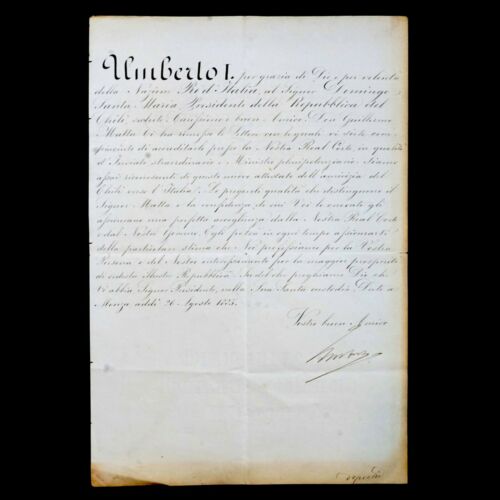 Umberto I. per grazia di Dio e per volontà
della Nazione Re d'Italia, al Signor Domingo
Santa Maria, Presidente della Repubblica del
Chilì, Carissimo e buon Amico. Don Guillermo
Matta Ci ha rimesso le Lettere con le quali vi siete com-
piaciuto di accreditarlo presso la Nostra Real Corte, in qualità
d'Inviato straordinario e Ministro plenipotenziario. Siamo
assai riconoscenti di questo nuovo attestato dell'amicizia del
Chilì verso l'Italia. Le pregevoli qualità che distinguono il
Signor Matta e la confidenza di cui Voi lo onorate gli
assicurano una perfetta accoglienza dalla Nostra Real Corte
e dal Nostro Governo. Egli potrà in ogni tempo assicurarvi
della particolare stima che Noi professiamo per la Vostra
Persona e del Nostro interessamento per la maggior prosperità
di codesta Illustre Repubblica. Ed preghiamo Dio che
Vi abbia, Signor Presidente, nella Sua Santa custodia. Dato a
Monza addì 26 Agosto
Vostro buon Amico
Umberto